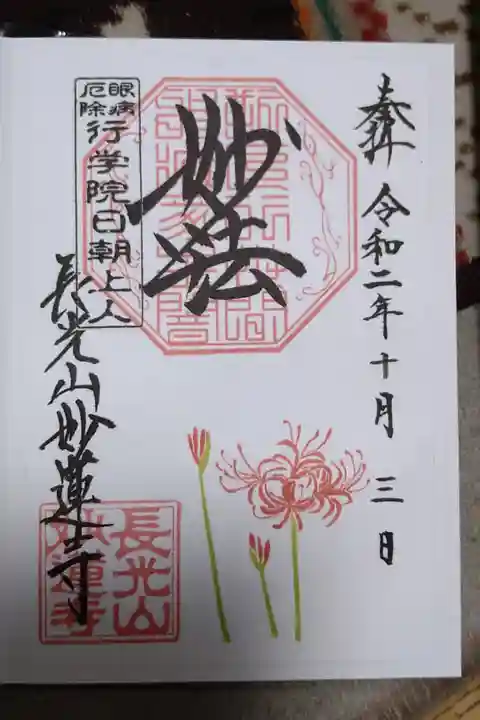 奉拝
令和二年十月三日
妙法
眼病
厄除
行学院日朝上人
長光山妙蓮寺
長光山
妙蓮寺